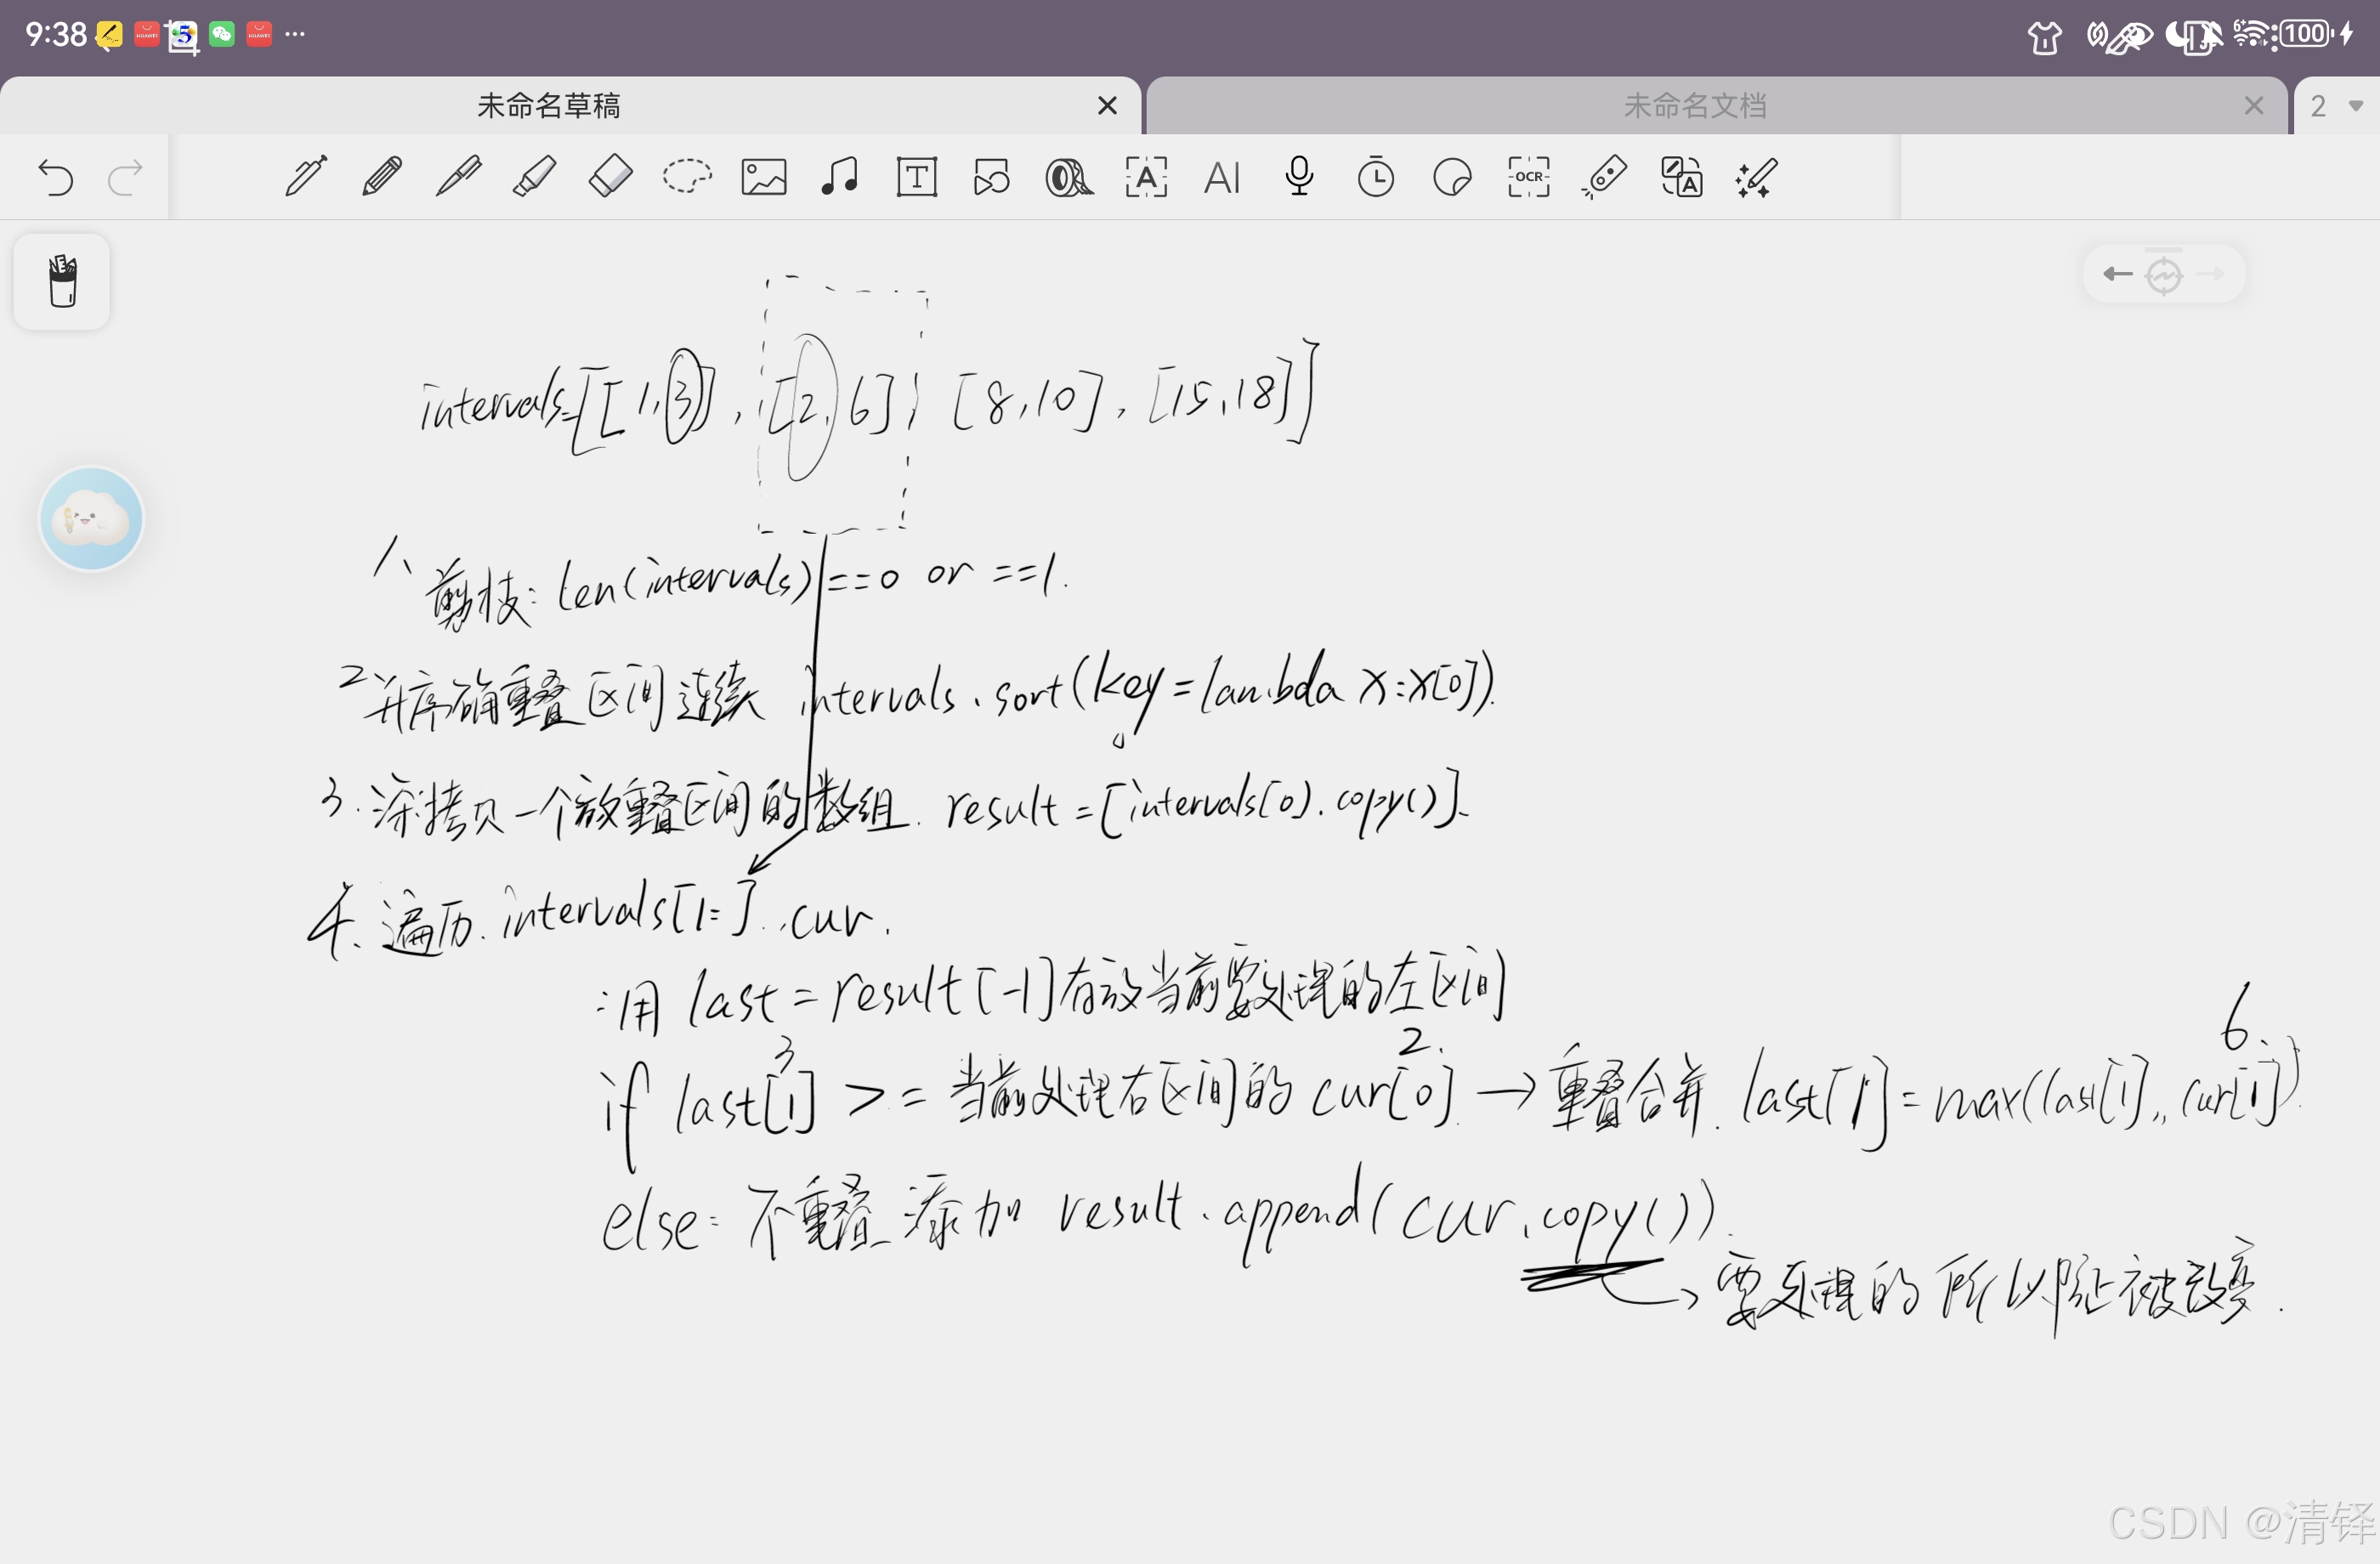 9:38
100
未命名草稿
未命名文档
2
T
A
AI
OCR
A
intervals=[[1,3],[2,6],[8,10],[15,18]]
1、剪枝: len(intervals)==0 or ==1.
2 升序确重叠区间连续 intervals.sort(key=lambda x:x[0]).
3.深拷贝一个放重叠区间的数组. result=[intervals[0].copy()].
4、遍历.intervals[1:].cur.
:用 last=result[-1]存放当前要处理的左区间
3
2.
6.
if last[1] >= 当前处理右区间的 cur[0] → 重叠合并. last[1]=max(last[1],cur[1]).
else: 不重叠 添加 result.append(cur.copy()).
要处理的 所以防止被改变.
CSDN @清铎